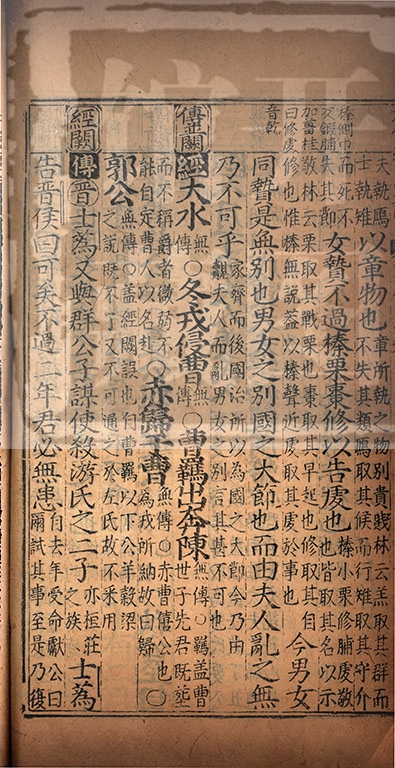 夫執鴈
士執雉
以章物也
章所執之物別貴賤林云羔取其群而
不失其類鴈取其候而行雉取其守介
榛側巾
反鍛脯
加薑桂
曰脩虔
音乾
而死不
失其節
女贄不過榛栗棗脩以告虔也
榛小栗脩脯虔敬
也皆取其名以示
敬林云栗取其戰栗也棗取其早起也脩取其自
修也惟榛無説蓋以榛聲近虔取其虔於事也
今男女
同贄是無別也男女之別國之大節也而由夫人亂之無
乃不可乎
家齊而後國治所以為國之大節今乃由
夫人而亂男女之別言其甚不可也
傳並闕
經大水
無傳
○冬戎侵曹
無傳
○曹羈出奔陳
無傳○羈盖曹
世子先君既塟
而不稱爵者微弱不
能自定曹人以名赴
○赤歸于曹
無傳○赤曹僖公也
為戎所納故曰歸
○
郭公
無傳○盖經闕誤也自曹羈以下公羊穀梁
之説既不了又不可通之於左氏故不采用
經闕
傳晉士蒍又與群公子謀使殺游氏之二子
亦桓莊
之族
士蒍
告晉侯曰可矣不過二年君必無患
自去年受命獻公曰
爾試其事至是乃復